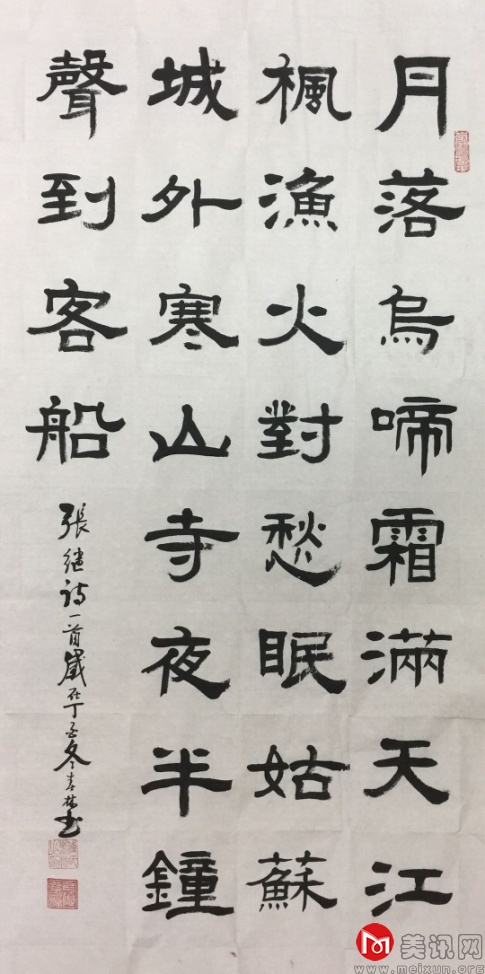 月落烏啼霜滿天江
楓漁火對愁眠姑蘇
城外寒山寺夜半鐘
聲到客船
張继詩一首歲在丁冬書
美讯网
www.meixun.org